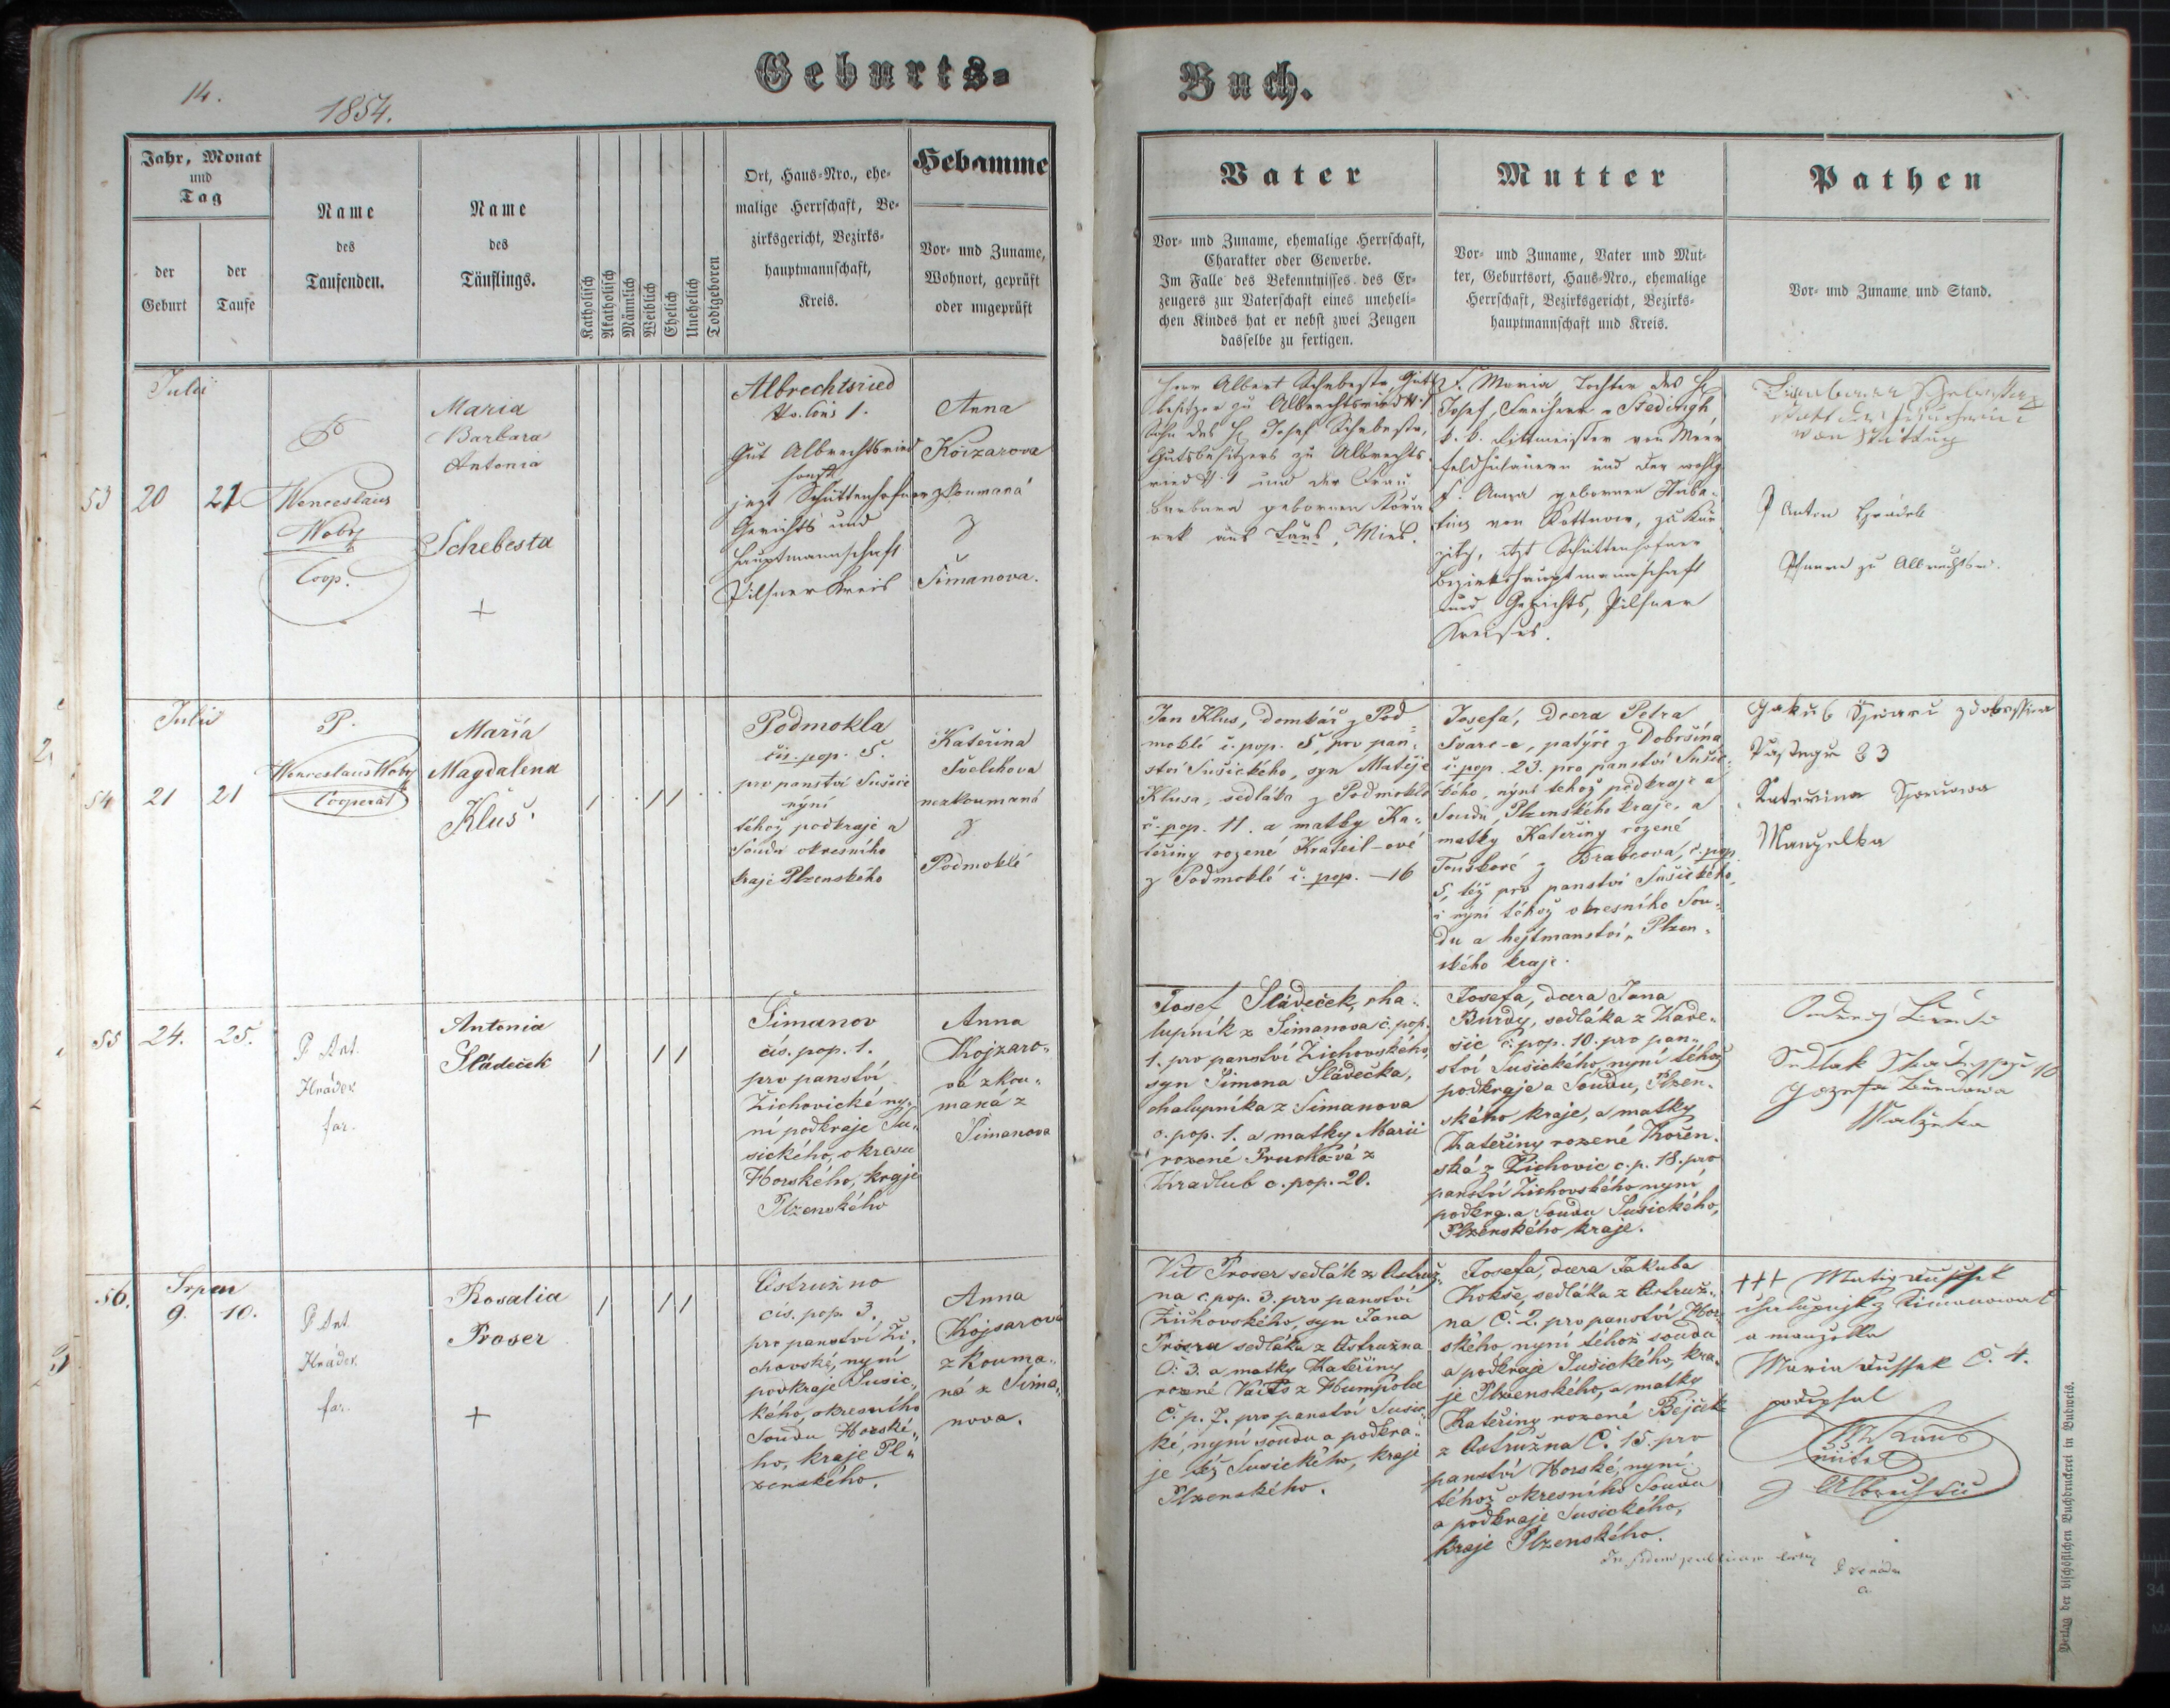 Geburts-
Buch.
14.
1854.
Jahr, Monat
und
Tag
der
Geburt
der
Taufe
Name
des
Taufenden.
Name
des
Täuflings.
Katholisch
Akatholisch
Männlich
Weiblich
Ehelich
Unehelich
Todtgeboren
Ort, Haus-Nro., ehe-
malige Herrschaft, Be-
zirksgericht, Bezirks-
hauptmannschaft,
Kreis.
Hebamme
Vor- und Zuname,
Wohnort, geprüft
oder ungeprüft
Vater
Vor- und Zuname, ehemalige Herrschaft,
Charakter oder Gewerbe.
Im Falle des Bekenntnisses des Er-
zeugers zur Vaterschaft eines uneheli-
chen Kindes hat er nebst zwei Zeugen
dasselbe zu fertigen.
Mutter
Vor- und Zuname, Vater und Mut-
ter, Geburtsort, Haus-Nro., ehemalige
Herrschaft, Bezirksgericht, Bezirks-
hauptmannschaft und Kreis.
Pathen
Vor- und Zuname und Stand.
Julii
53 20 21
P
Wenceslaus
Coop.
Maria
Barbara
Antonia
Schebesta
+
Albrechtsried
1.
Gut Albrechtsried
sonst
jezt Schüttenhofner
Gerichts und
Hauptmannschaft
Pilsner Kreis
Anna
Koizarova
zkoumaná
z
Šimanova.
Herr Albert Schebesta, Guts-
besitzer zu Albrechtsried N. 1
Sohn des H. Josef Schebesta,
Gutsbesitzers zu Albrechts-
ried N. 1 und der Frau
Barbara gebornen
aus Taus, Mies.
F. Maria Tochter des H
Josef, Freiherr v Stedingk,
k. k. Rittmeister von
und der
F. Anna gebornen
von Kottnow, zu
Schüttenhofner
Bezirkshauptmannschaft
und Gerichts, Pilsner
Kreises.
P Anton Hradek
Pfarrer zu Albrechtsr.
Julii
54 21 21
P.
Wenceslaus
Cooperat
Maria
Magdalena
Kluš.
Podmokla
čis. pop. 5.
pro panství Sušice
nyní
téhož podkraje a
Soudu okresního
kraje Plzenského
Kateřina
Švelchova
nezkoumaná
z
Podmoklé
Jan Klus, domkář z Pod-
moklé č. pop. 5, pro pan-
ství Sušického, syn Matěje
Klusa, sedláka z Podmoklé
č. pop. 11. a matky Ka-
teřiny rozené Krateil-ové
z Podmoklé č. pop. —16
Josefa, Dcera Petra
Švarc-e, patýře z Dobršína
č. pop. 23. pro panství Sušic-
kého, nyní téhož podkraje a
Soudu, Plzenského kraje, a
matky Kateřiny rozené
Touškové z Brabcova, č. pop.
5, též pro panství Sušického,
i nýní téhož okresního Sou-
du a hejtmanství, Plzen-
ského kraje.
Jakub
23
Katerina
Manzelka
55 24. 25.
P Ant.
Hrádek
far.
Antonia
Sládeček
Šimanov
čís. pop. 1.
pro panství
Žichovické ny-
ní podkraje Su-
sického, okresu
Horského, kraje
Plzenského
Anna
Kojzaro-
vá zkou-
maná z
Šimanova
Josef Sládeček, cha-
lupník z Simanova č. pop.
1. pro panství Žichovského,
syn Šimona Sládečka,
chalupníka z Simanova
č. pop. 1. a matky Marii
rozené Pruskavá z
Kradlub c. pop. 20.
Josefa, dcera Jana
Burdy, sedláka z Kade-
sic č. pop. 10. pro pan-
ství Susického, nyní téhož
podkraje a Soudu, Plzen-
ského kraje, a matky
Kateřiny rozené Kořen-
ská z Žichovic c. p. 18. pro
panství Žichovského nyní
podkra. a Soudu Susického,
Plzenského kraje.
Sedlak
10
56. Srpen
9. 10.
P Ant.
Hrádek
far.
Rosalia
Proser
+
Ostružno
čís. pop. 3.
pro panství Ži-
chovské, nyní
podkraje Susic-
kého, okresního
Soudu Horské-
ho, kraje Pl-
zenského.
Anna
Kojsarová
zkouma-
ná z Sima-
nova.
Vít Proser sedlák z Ostruž-
na c. pop. 3. pro panství
Žichovského, syn Jana
Prosra sedláka z Ostružna
Č. 3. a matky Kateřiny
rozené Vaits z Humpolce
Č. p. 7. pro panství Susic-
ké, nyní soudu a podkra-
je též Susického, kraje
Plzenského.
Josefa, dcera Jakuba
Kokše, sedláka z Ostruž-
na Č. 2. pro panství Hor-
ského, nyní téhož soudu
a podkraje Susického, kra-
je Plzenského, a matky
Kateřiny rozené Bejček
z Ostružna Č. 15. pro
panství Horské, nyní
téhož okresního Soudu
a podkraje Susického,
kraje Plzenského.
+++ Matig Dussek
chalupnjk z Simonowa
a manzelka
Maria Dussek Č. 4.
podepsal
Verlag der bischöflichen Buchdruckerei in Budweis.